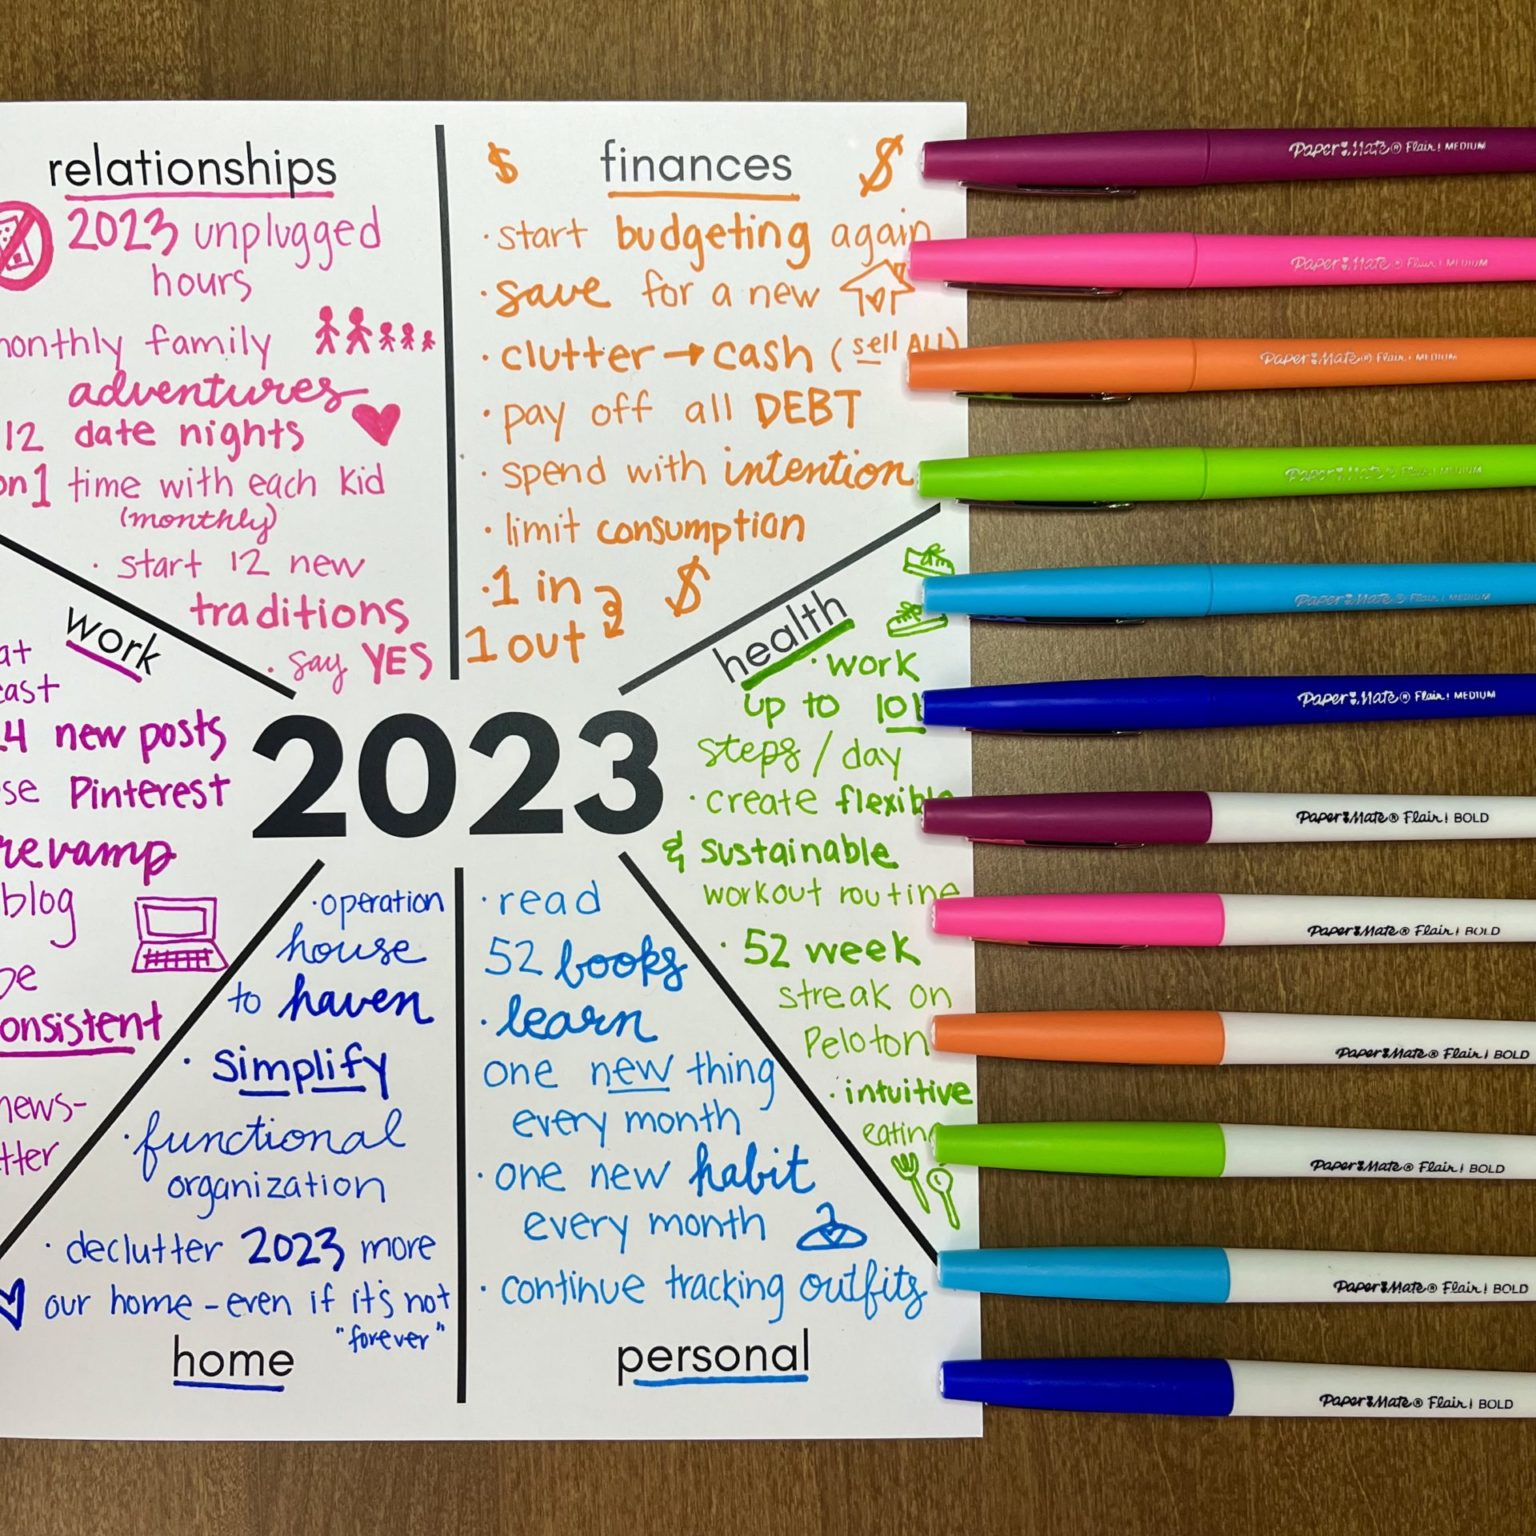 relationships
2023 unplugged
hours
monthly family
adventures
12 date nights
on 1 time with each kid
(monthly)
· start 12 new
traditions
· say YES
$ finances $
· start budgeting again
· save for a new
· clutter → cash (sell ALL)
· pay off all DEBT
· spend with intention
· limit consumption
· 1 in $
1 out
health
· work
up to 10
steps/day
· create flexible
& sustainable
workout routine
· 52 week
streak on
Peloton
· intuitive
eating
work
new posts
Pinterest
revamp
blog
consistent
news-
2023
· operation
house
to haven
· simplify
· functional
organization
· declutter 2023 more
our home - even if it's not
"forever"
home
· read
52 books
· learn
one new thing
every month
· one new habit
every month
· continue tracking outfits
personal
Paper Mate® Flair! MEDIUM
Paper Mate® Flair! MEDIUM
Paper Mate® Flair! MEDIUM
Paper Mate® Flair! MEDIUM
Paper Mate® Flair! MEDIUM
Paper Mate® Flair! MEDIUM
Paper Mate® Flair! BOLD
Paper Mate® Flair! BOLD
Paper Mate® Flair! BOLD
Paper Mate® Flair! BOLD
Paper Mate® Flair! BOLD
Paper Mate® Flair! BOLD